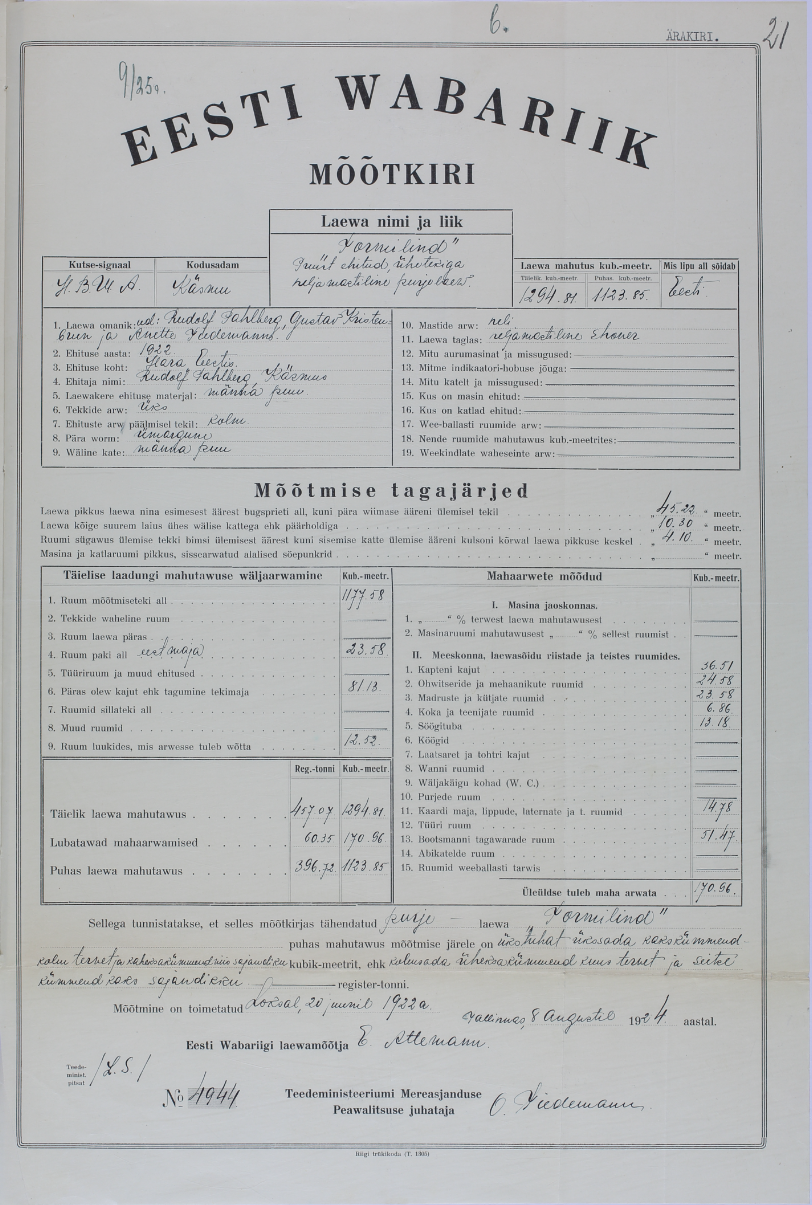 6.
ÄRAKIRI.
21
9/25 a.
EESTI WABARIIK
MÕÕTKIRI
Laewa nimi ja liik
„Tormilind"
Puust ehitud, ühetekiga
neljamastiline purjelaew.
Kutse-signaal
Kodusadam
Käsmu
Laewa mahutus kub.-meetr.
Mis lipu all sõidab
Täielik kub.-meetr.
Puhas kub.-meetr.
1294.81
1123.85.
Eesti
1. Laewa omanik: ed: Rudolf Pahlberg, Gustav Kristen-
brun ja Anette Tiedemann.
2. Ehituse aasta: 1922
3. Ehituse koht: Hara Eestis.
4. Ehitaja nimi: Rudolf Pahlberg, Käsmus
5. Laewakere ehituse materjal: männa puu
6. Tekkide arw: üks
7. Ehituste arw päälmisel tekil: Kolm.
8. Pära worm: ümargune
9. Wäline kate: männa puu
10. Mastide arw: neli
11. Laewa taglas: neljamastiline shoner
12. Mitu aurumasinat ja missugused:
13. Mitme indikaatori-hobuse jõuga:
14. Mitu katelt ja missugused:
15. Kus on masin ehitud:
16. Kus on katlad ehitud:
17. Wee-ballasti ruumide arw:
18. Nende ruumide mahutawus kub.-meetrites:
19. Weekindlate waheseinte arw:
Mõõtmise tagajärjed
Laewa pikkus laewa nina esimesest äärest bugsprieti all, kuni pära wiimase ääreni ülemisel tekil „ 45.22 " meetr.
Laewa kõige suurem laius ühes wälise kattega ehk päärholdiga „ 10.30 " meetr.
Ruumi sügawus ülemise tekki bimsi ülemisest äärest kuni sisemise katte ülemise ääreni kulsoni kõrwal laewa pikkuse keskel „ 4.10 " meetr.
Masina ja katlaruumi pikkus, sissearwatud alalised söepunkrid „ " meetr.
Täielise laadungi mahutawuse wäljaarwamine
Kub.-meetr.
1. Ruum mõõtmiseteki all 1177 58
2. Tekkide waheline ruum
3. Ruum laewa päras
4. Ruum paki all eestmaja 23.58
5. Tüüriruum ja muud ehitused
6. Päras olew kajut ehk tagumine tekimaja 81 13
7. Ruumid sillateki all
8. Muud ruumid
9. Ruum luukides, mis arwesse tuleb wõtta 12.52.
Reg.-tonni Kub.-meetr.
Täielik laewa mahutawus 457.07 1294.81
Lubatawad mahaarwamised 60.35 170.96
Puhas laewa mahutawus 396.72. 1123.85
Mahaarwete mõõdud
Kub.-meetr.
I. Masina jaoskonnas.
1. „ " % terwest laewa mahutawusest
2. Masinaruumi mahutawusest „ " % sellest ruumist
II. Meeskonna, laewasõidu riistade ja teistes ruumides.
1. Kapteni kajut 36.51
2. Ohwitseride ja mehaanikute ruumid 24 58
3. Madruste ja kütjate ruumid 23 58
4. Koka ja teenijate ruumid 6.86
5. Söögituba 13.18
6. Köögid
7. Laatsaret ja tohtri kajut
8. Wanni ruumid
9. Wäljakäigu kohad (W. C.)
10. Purjede ruum
11. Kaardi maja, lippude, laternate ja t. ruumid 14.78
12. Tüüri ruum
13. Bootsmanni tagawarade ruum 51.47
14. Abikatelde ruum
15. Ruumid weeballasti tarwis
Üleüldse tuleb maha arwata 170.96.
Sellega tunnistatakse, et selles mõõtkirjas tähendatud purje — laewa „Tormilind"
puhas mahutawus mõõtmise järele on üks tuhat ükssada kakskümmend-
kolm tervet ja kaheksakümmend wiis sajandikku kubik-meetrit, ehk kolmsada üheksakümmend kuus tervet ja seitse
kümmend kaks sajandikku register-tonni.
Mõõtmine on toimetatud Loksal, 20 juunil 1922 a.
Tallinnas, 8 Augustil 1924 aastal.
Eesti Wabariigi laewamõõtja E. Attemann.
Teede-
minist.
pitsat
/L.S/
№ 4944
Teedeministeeriumi Mereasjanduse
Peawalitsuse juhataja
O. Tiedemann
Riigi trükikoda (T. 1305)